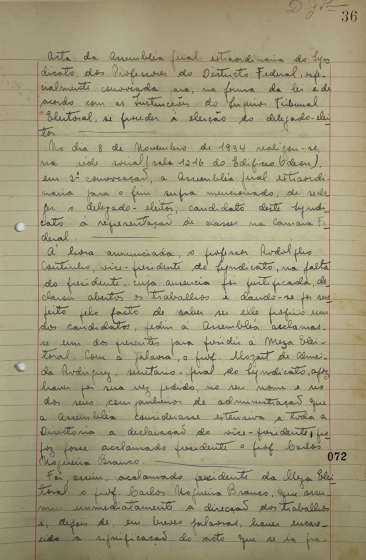 36
Acta da Assembléa geral extraordinaria do Syn-
dicato dos Professores do Districto Federal, espe-
cialmente convocada para, na forma da lei e de
accordo com as Instrucções do Superior Tribunal
Eleitoral, se proceder á eleição do delegado-elei-
tor.
No dia 8 de Novembro de 1934 realizou-se,
na séde social (sala 1216 do Edificio Odeon),
em 2ª convocação, a Assembléa geral extraordi-
naria para o fim supra mencionado, de
o delegado-eleitor, candidato deste Syndi-
cato á representação de classes na Camara Fe-
deral.
Á hora annunciada, o professor Rodolpho
Coutinho, vice-presidente do Syndicato, na falta
do presidente, cuja ausencia foi justificada, de-
clarou abertos os trabalhos e dando-se por sus-
peito pelo facto de saber ser elle proprio um
dos candidatos, pediu á Assembléa acclamas-
se um dos presentes para presidir á Meza Elei-
toral. Com a palavra, o prof. Mozart de Almei-
da Rodrigues, secretario-geral do Syndicato, após
haver por sua vez pedido, no seu nome e no
dos seus companheiros de administração que
a Assembléa considerasse extensiva a toda a
Directoria a declaração do vice-presidente,
fosse acclamado presidente o prof. Carlos
Nogueira Branco.
072
Foi, assim, acclamado presidente da Meza Elei-
toral o prof. Carlos Nogueira Branco, que assu-
miu immediatamente a direcção dos trabalhos
e, depois de, em breves palavras, haver enca-
recido a significação do acto que se ia pra-